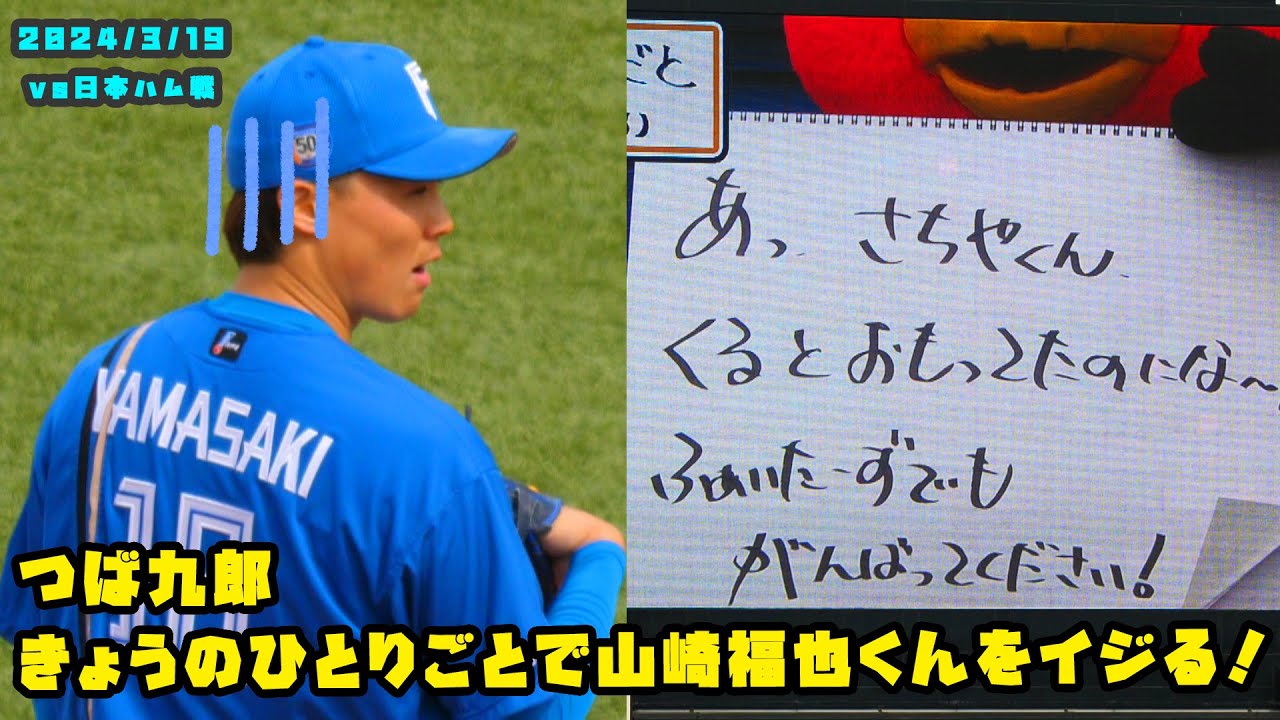 2024/3/19
vs日本ハム戦
50
F
YAMASAKI
ごと
あっ、さちやくん、
くるとおもってたのにな〜
ふぁいたーずでも
がんばってください!
つば九郎
きょうのひとりごとで山﨑福也くんをイジる!